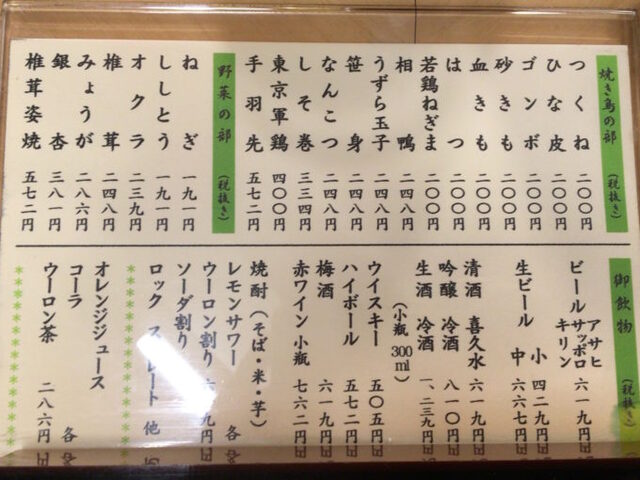 焼き鳥の部 (税抜き)
つくね 二〇〇円
ひな皮 二〇〇円
ゴンボ 二〇〇円
砂きも 二〇〇円
血きも 二〇〇円
はつ 二〇〇円
若鶏ねぎま 二〇〇円
相鴨 二四八円
うずら玉子 二四八円
笹身 二四八円
なんこつ 二四八円
しそ巻 三三四円
東京軍鶏 四〇〇円
手羽先 五七二円
野菜の部 (税抜き)
ねぎ 一九一円
ししとう 一九一円
オクラ 二三九円
椎茸 二四八円
みょうが 二八六円
銀杏 三八一円
椎茸姿焼 五七二円
御飲物 (税抜き)
ビール アサヒ サッポロ キリン 六一九円
生ビール 小 四二九円
中 六六七円
清酒 喜久水 六一九円
吟醸 冷酒 八一〇円
生酒 冷酒 一、二三九円
(小瓶 300ml)
ウイスキー 五〇五円
ハイボール 五七二円
梅酒 六一九円
赤ワイン 小瓶 七六二円
焼酎(そば・米・芋)
レモンサワー 各
ウーロン割り 六 円
ソーダ割り
ロック ス レート 他
オレンジジュース
コーラ 各
ウーロン茶 二八六円